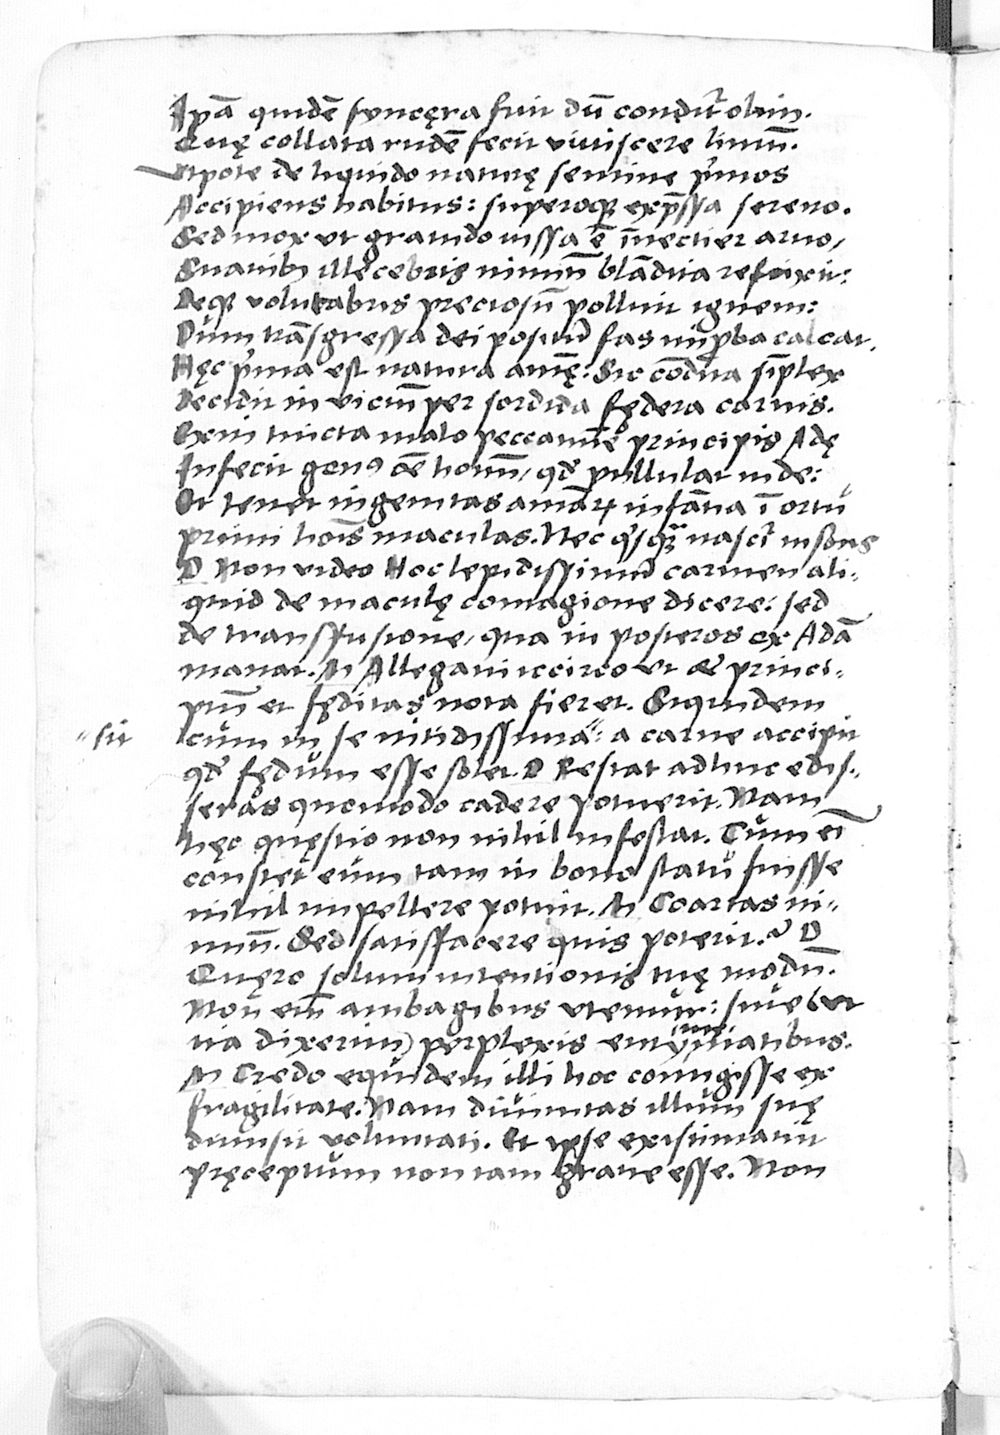 Ipã quidẽ syncęra fuit dũ condit᷑ olim.
Quę collata rudẽ fecit viuiscere limũ.
Vtpote de liquido naturę semine p̃mos
Accipiens habitus: superoqꝫ exp̃ssa sereno.
Sed mox vt grauido iussa ẽ ĩnectier aruo,
Suauibꝫ illecebris nimiũ blãdita refrixit:
Deqꝫ volutabris preciosũ polluit ignem:
Dum trãsgressa dei positũ fas imꝓba calcat.
Hęc p̃ma est natura animę: Sic cõdita sĩplex
Decidit in vicium per sordida fędera carnis.
Exin tincta malo peccamĩe principis Adę
Infecit genꝰ õe hoĩm, qđ pullulat inde:
Et tenet ingenitas animaꝝ infãtia ĩ ortũ
primi hoĩs maculas. Nec q̃sqꝫ nascit᷑ insons
D Non video Hoc lepidissimũ carmen ali-
quid de maculę contagione dicere: sed
de transfusione, qua in posteros ex Adã
manat. M Allegaui iccirco vt &̃ princi-
piũ et fęditas nota fieret. Siquidem
cum in se nitidissima " : a carne accipit
"sit
qđ fędum esse solet. D Restat adhuc edis-
seras quomodo cadere potuerit. Nam
hęc quęstio non nihil infestat. Cum eĩ
constet eum tam in bono statũ fuisse
nihil impellere potuit. M Coartas ni-
mium. Sed satisfacere quis poterit? D
Quęro solum intentionis tuę modũ.
Non eĩ ambagibus vtemur: siue (vt
ita dixerim) perplexis entymematibus.
M Credo equidem illi hoc contigisse ex
fragilitate. Nam diuinitas illum suę
dimisit voluntati. Et ipse existimauit
pręceptum non tam graue esse. Non